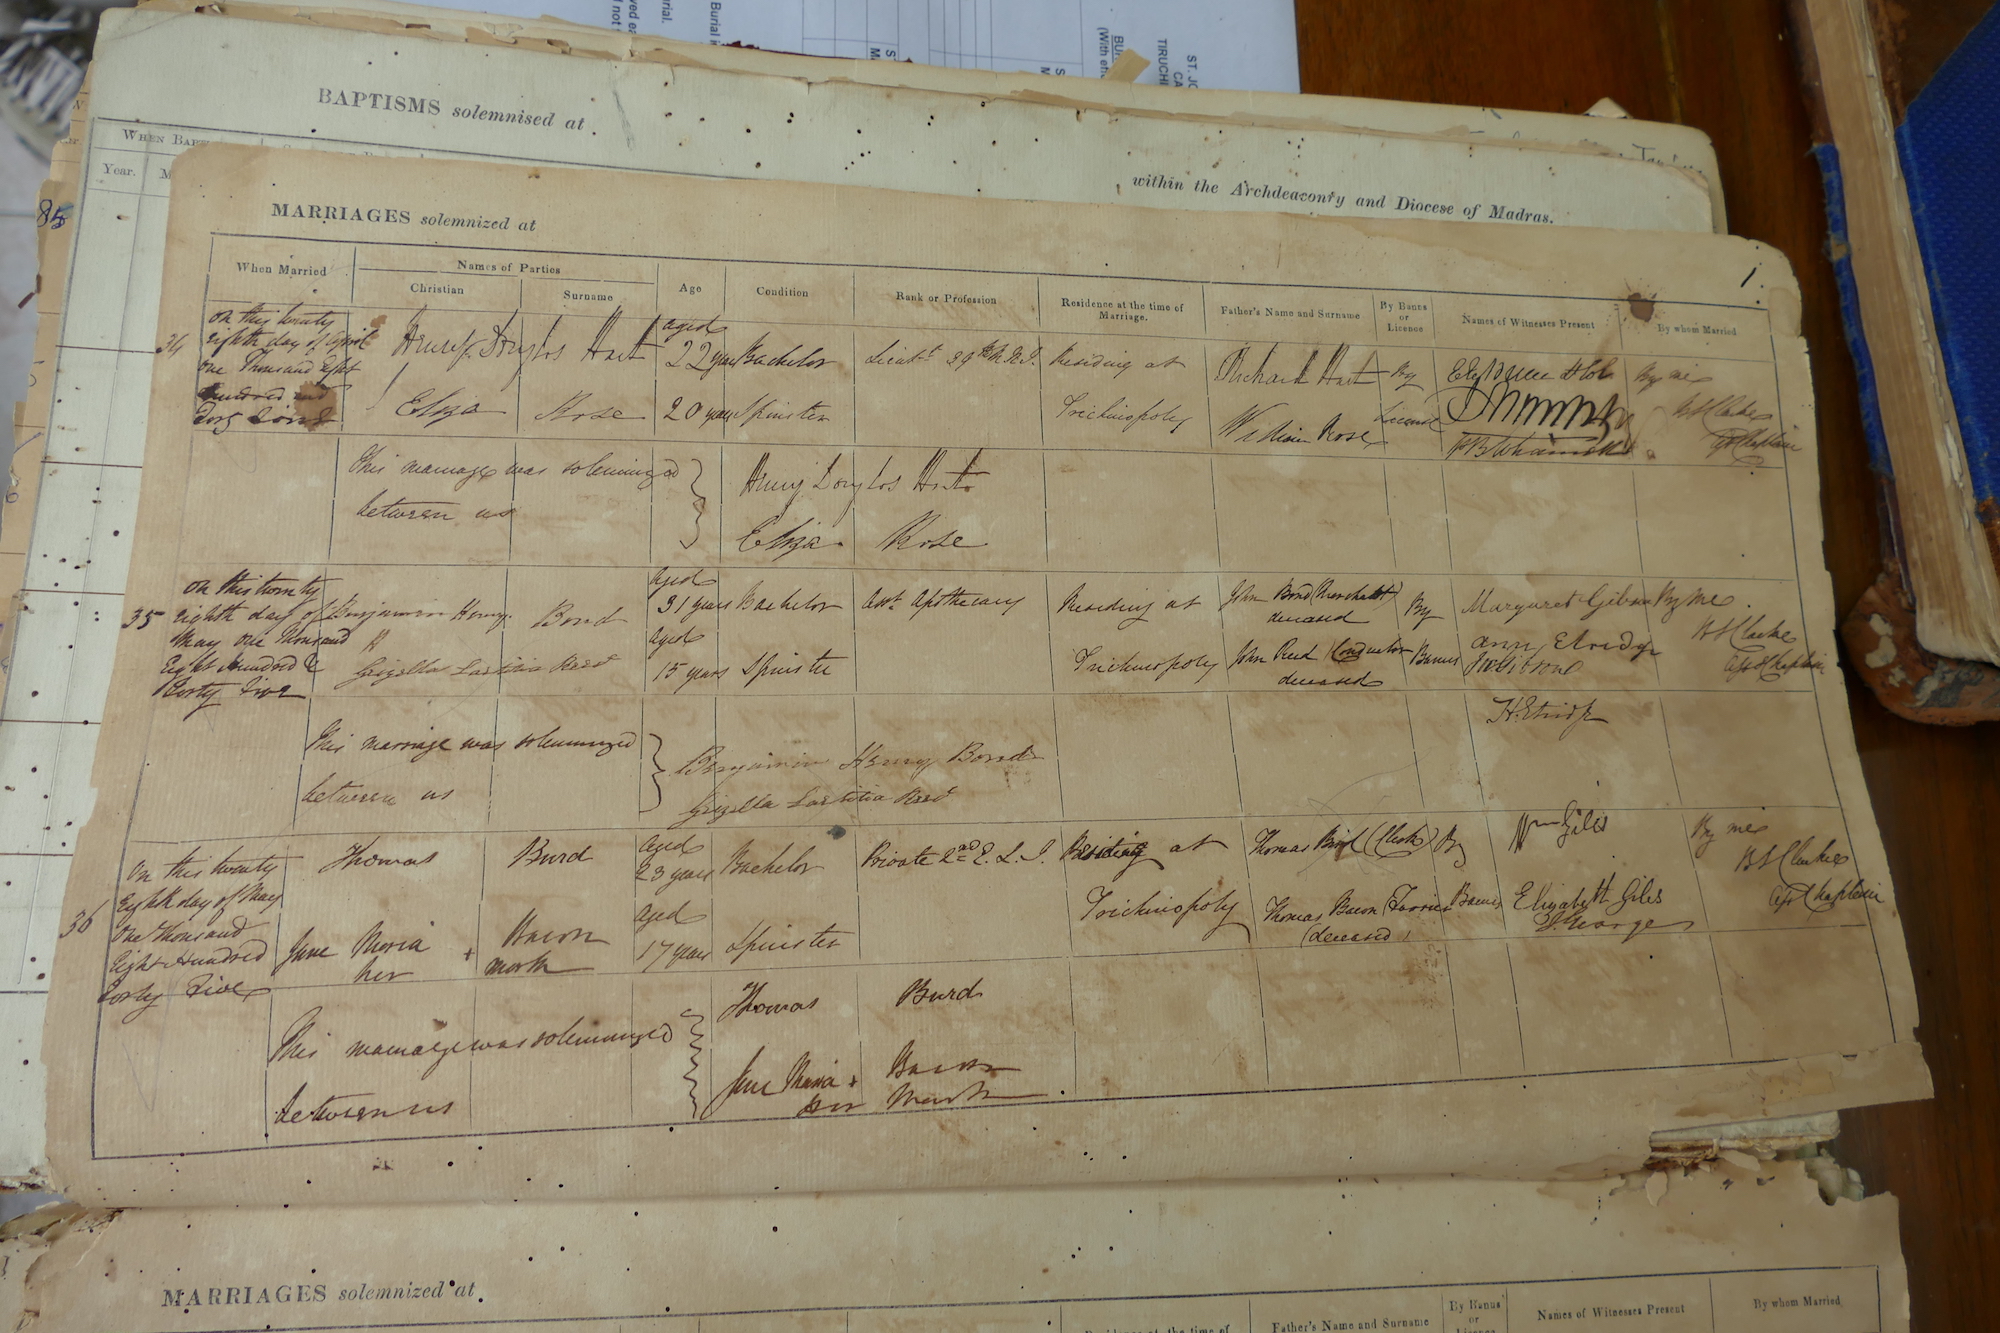 BAPTISMS solemnised at
within the Archdeaconry and Diocese of Madras.
Year.
85
MARRIAGES solemnized at
1.
When Married
Names of Parties
Christian
Surname
Age
Condition
Rank or Profession
Residence at the time of Marriage.
Father's Name and Surname
By Banns or Licence
Names of Witnesses Present
By whom Married
34
on this twenty
eighth day of April
one Thousand Eight
hundred and
Forty Five
Henry Douglas Hart
aged
22 years
Bachelor
Lieutt 29th
Residing at
Richard Hart
By
By me
Eliza Rose
20 years
Spinster
Trichinopoly
William Rose
License
This marriage was solemnized
between us
Henry Douglas Hart
Eliza Rose
35
on this twenty
eighth day of
May one Thousand
Eight Hundred &
Forty Five
Benjamin Henry Bond
aged
31 years
Bachelor
Asst. Apothecary
Residing at
John Bond (Merchant)
deceased
By
Margaret Gibson
By me
Laetitia Reed
aged
15 years
Spinster
Trichinopoly
John Reed (Conductor
deceased
Banns
Ann
This marriage was solemnized
between us
Benjamin Henry Bond
Laetitia Reed
36
On this twenty
Eighth day of May
One Thousand
Eight Hundred
Forty Five
Thomas Burd
aged
23 years
Bachelor
Private 2nd E. L. I.
Residing at
Thomas Burd (Clerk)
By
Wm Giles
By me
Jane Maria + Bacon
her mark
aged
17 years
Spinster
Trichinopoly
Thomas Bacon (Farrier
(deceased)
Banns
Elizabeth Giles
George
This marriage was solemnized
between us
Thomas Burd
Jane Maria + Bacon
her Mark
MARRIAGES solemnized at
Residence at the time of
Father's Name and Surname
By Banns or
Names of Witnesses Present
By whom Married